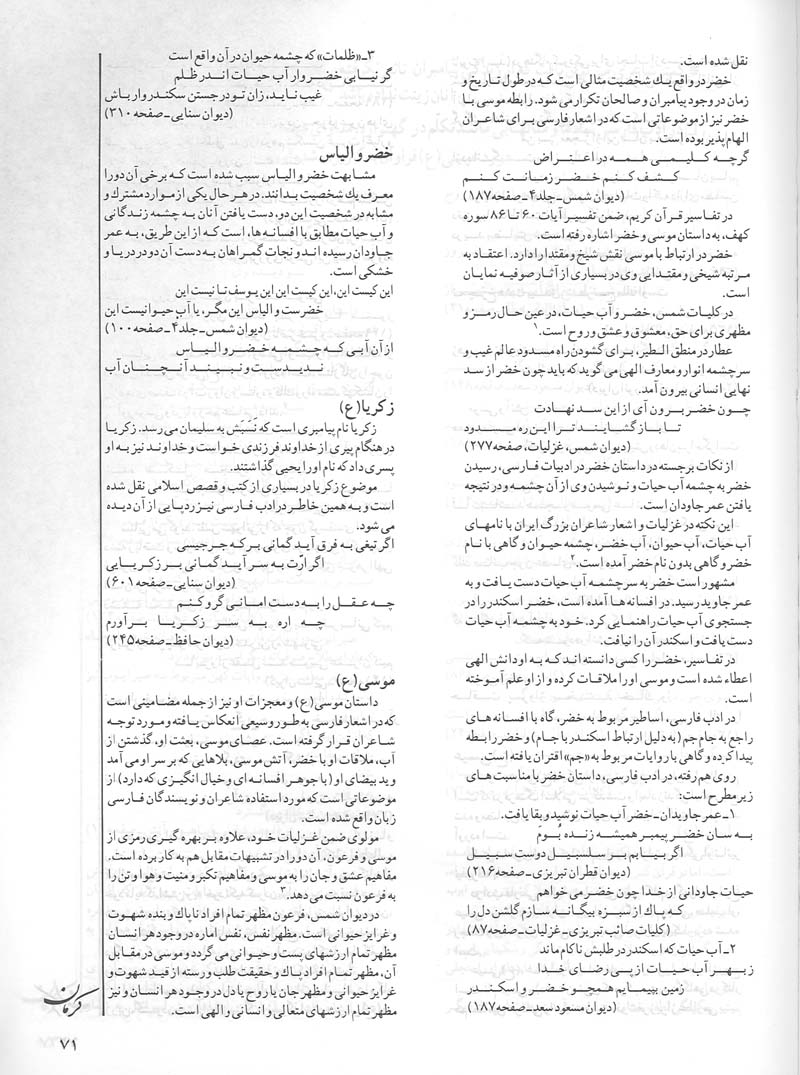 نقل شده است.
خضر در واقع یك شخصیت مثالی است كه در طول تاریخ و
زمان در وجود پیامبران و صالحان تكرار می شود. رابطه موسی با
خضر نیز از موضوعاتی است كه در اشعار فارسی برای شاعران
الهام پذیر بوده است.
گرچه كلیمی همه در اعتراض
كشف كنم خضر زمانت كنم
(دیوان شمس-جلد۴-صفحه۱۸۷)
در تفاسیر قرآن كریم، ضمن تفسیر آیات ۶۰ تا ۸۶ سوره
كهف، به داستان موسی و خضر اشاره رفته است.
خضر در ارتباط با موسی نقش شیخ و مقتدا را دارد. اعتقاد به
مرتبه شیخی و مقتدایی وی در بسیاری از آثار صوفیه نمایان
است.
در كلیات شمس، خضر و آب حیات، در عین حال رمز و
مظهری برای حق، معشوق و عشق و روح است.۱
عطار در منطق الطیر، برای گشودن راه مسدود عالم غیب و
سرچشمه انوار و معارف الهی می گوید كه باید چون خضر از سد
نهایی انسانی بیرون آمد.
چون خضر برون آی از این سد نهادت
تا باز گشایند ترا این ره مسدود
(دیوان شمس، غزلیات، صفحه۲۷۷)
از نكات برجسته در داستان خضر در ادبیات فارسی، رسیدن
خضر به چشمه آب حیات و نوشیدن وی از آن چشمه و در نتیجه
یافتن عمر جاودان است.
این نكته در غزلیات و اشعار شاعران بزرگ ایران با نامهای
آب حیات، آب حیوان، آب خضر، چشمه حیوان و گاهی با نام
خضر و گاهی بدون نام خضر آمده است.۲
مشهور است خضر به سرچشمه آب حیات دست یافت و به
عمر جاوید رسید. در افسانه ها آمده است، خضر اسكندر را در
جستجوی آب حیات راهنمایی كرد. خود به چشمه آب حیات
دست یافت و اسكندر آن را نیافت.
در تفاسیر، خضر را كسی دانسته اند كه به او دانش الهی
اعطاء شده است و موسی او را ملاقات كرده و از او علم آموخته
است.
در ادب فارسی، اساطیر مربوط به خضر، گاه با افسانه های
راجع به جام جم (به دلیل ارتباط اسكندر با جام) و خضر رابطه
پیدا كرده و گاهی با روایات مربوط به «جم» اقتران یافته است.
روی هم رفته، در ادب فارسی، داستان خضر با مناسبت های
زیر مطرح است:
۱-عمر جاویدان-خضر آب حیات نوشید و بقا یافت.
به سان خضر پیمبر همیشه زنده بُومَ
اگر بیابم بر سلسبیل دوست سبیل
(دیوان قطران تبریزی-صفحه۲۱۶)
حیات جاودانی از خدا چون خضر می خواهم
كه پاك از سبزه بیگانه سازم گلشن دل را
(كلیات صائب تبریزی-غزلیات-صفحه۸۷)
۲-آب حیات كه اسكندر در طلبش ناكام ماند
ز بهر آب حیات از پی رضای خدا
زمین بپیمایم همچو خضر و اسكندر
(دیوان مسعود سعد-صفحه۱۸۷)
۳-«ظلمات» كه چشمه حیوان در آن واقع است
گر نیابی خضروار آب حیات اندر ظلم
غیب ناید، زان تو در جستن سكندروار باش
(دیوان سنایی-صفحه۳۱۰)
خضر و الیاس
مشابهت خضر و الیاس سبب شده است كه برخی آن دو را
معرف یك شخصیت بدانند. در هر حال یكی از موارد مشترك و
مشابه در شخصیت این دو، دست یافتن آنان به چشمه زندگانی
و آب حیات مطابق با افسانه ها، است كه از این طریق، به عمر
جاودان رسیده اند و نجات گمراهان به دست آن دو در دریا و
خشكی است.
این كیست این، این كیست این این یوسف تا نیست این
خضرست و الیاس این مگر، یا آب حیوانیست این
(دیوان شمس-جلد۴-صفحه۱۰۰)
از آن آبی كه چشمه خضر و الیاس
ندیدست و نبیند آنچنان آب
زكریا(ع)
زكریا نام پیامبری است كه نَسَبَش به سلیمان می رسد. زكریا
در هنگام پیری از خداوند فرزندی خواست و خداوند نیز به او
پسری داد كه نام او را یحیی گذاشتند.
موضوع زكریا در بسیاری از كتب و قصص اسلامی نقل شده
است و به همین خاطر در ادب فارسی نیز ردپایی از آن دیده
می شود.
اگر تیغی به فرق آید گمانی بر كه جرجیسی
اگر ارّت به سر آید گمانی بر زكریایی
(دیوان سنایی-صفحه۶۰۱)
چه عقل را به دست امانی گرو كنم
چه اره به سر زكریا برآورم
(دیوان حافظ-صفحه۲۴۵)
موسی(ع)
داستان موسی(ع) و معجزات او نیز از جمله مضامینی است
كه در اشعار فارسی به طور وسیعی انعكاس یافته و مورد توجه
شاعران قرار گرفته است. عصای موسی، بعثت او، گذشتن از
آب، ملاقات او با خضر، آتش موسی، بلاهایی كه بر سر او می آمد
و ید بیضای او (با جوهر افسانه ای و خیال انگیزی كه دارد) از
موضوعاتی است كه مورد استفاده شاعران و نویسندگان فارسی
زبان واقع شده است.
مولوی ضمن غزلیات خود، علاوه بر بهره گیری رمزی از
موسی و فرعون، آن دو را در تشبیهات مقابل هم به كار برده است.
مفاهیم عشق و جان را به موسی و مفاهیم تكبر و منیت و هوا و تن را
به فرعون نسبت می دهد.۳
در دیوان شمس، فرعون مظهر تمام افراد ناپاك و بنده شهوت
و غرایز حیوانی است. مظهر نفس، نفس اماره در وجود هر انسان
مظهر تمام ارزشهای پست و حیوانی می گردد و موسی در مقابل
آن، مظهر تمام افراد پاك و حقیقت طلب و رسته از قید شهوت و
غرایز حیوانی و مظهر جان یا روح یا دل در وجود هر انسان و نیز
مظهر تمام ارزشهای متعالی و انسانی و الهی است.
كرمان
۷۱